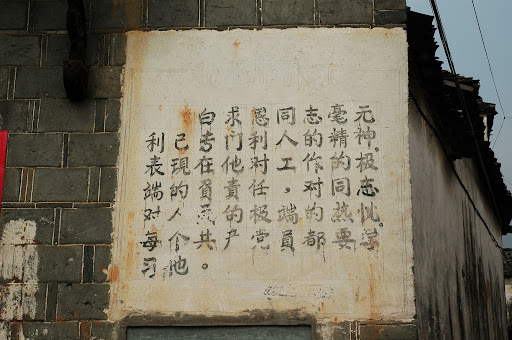 白求恩同志毫无
利己专门利人的精神，
表现在他对工作的极
端的负责任，对同志
对人民的极端的热忱。
每个共产党员都要学
习他。